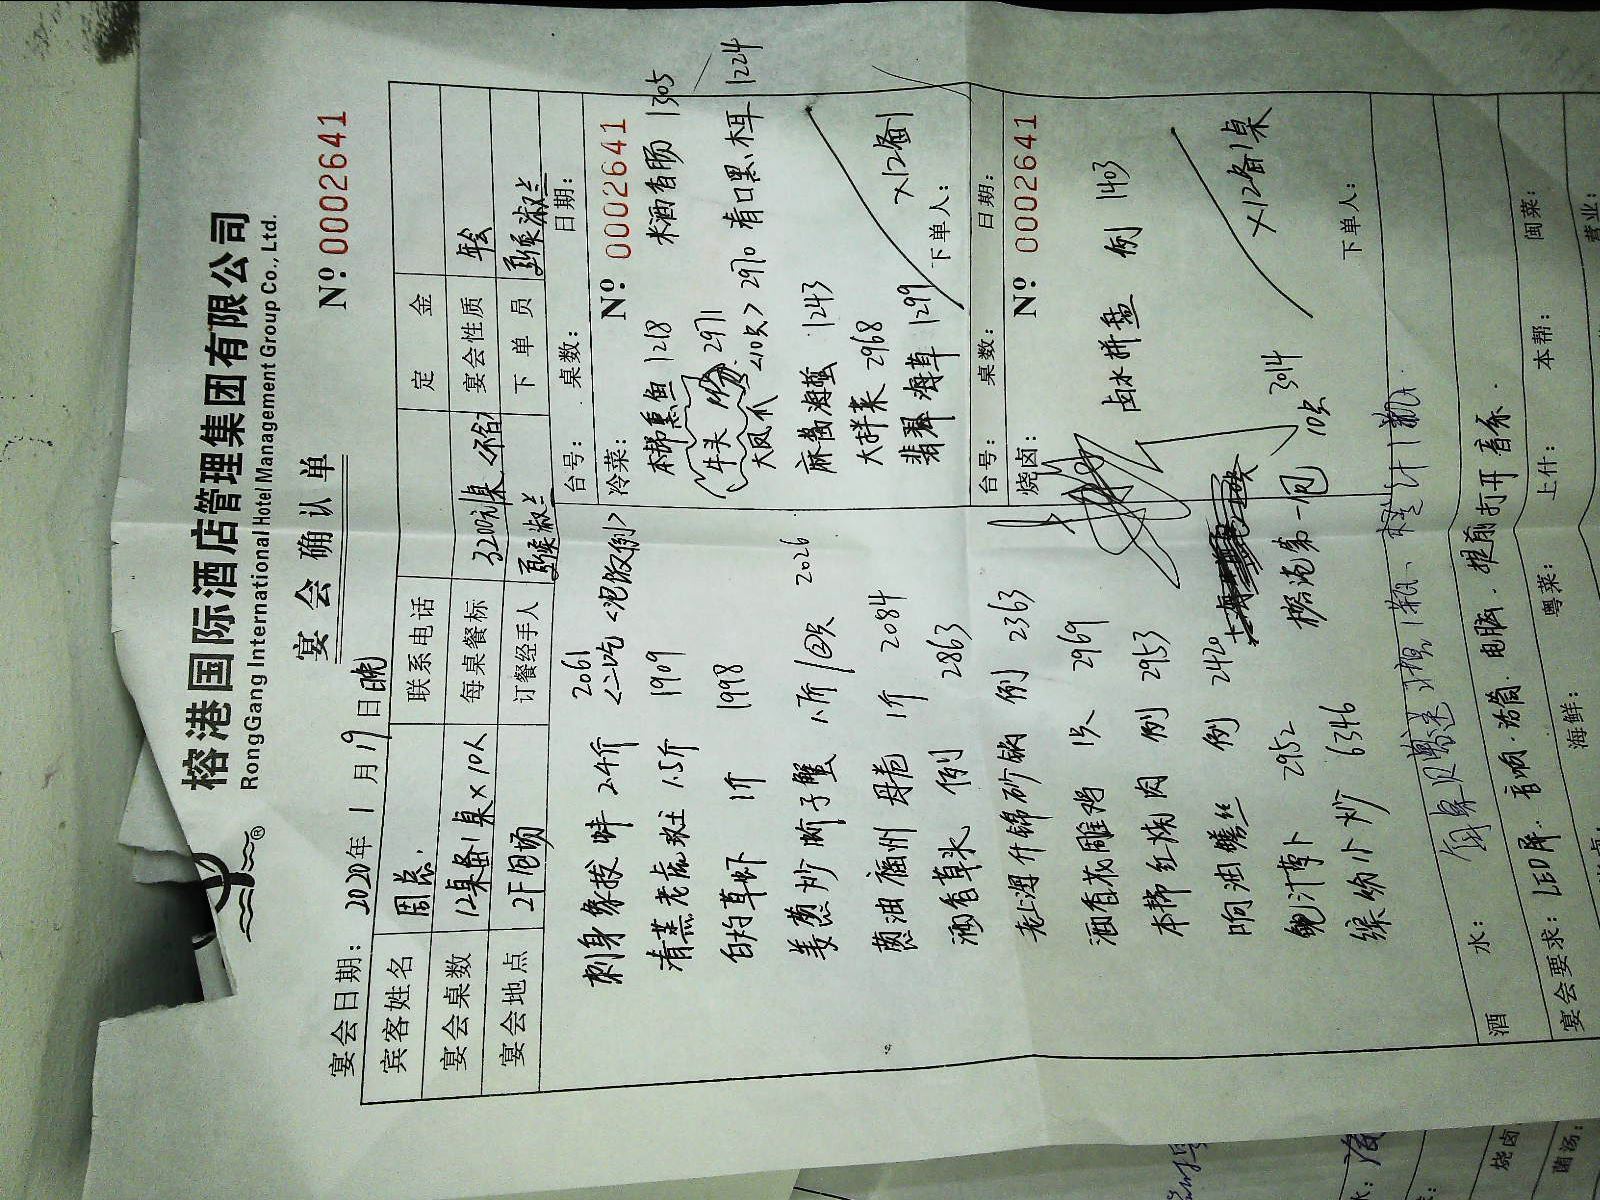 榕港国际酒店管理集团有限公司
RongGang International Hotel Management Group Co., Ltd.
®
宴会确认单
Nº: 0002641
宴会日期: 2020年 1月19日晚
宾客姓名 周总. 联系电话 定金
宴会桌数 12桌备1桌×10人 每桌餐标 3200元/桌 宴会性质 年会
宴会地点 2F 订餐经手人 下单员
刺身象拔蚌 2.4斤 2061 <二吃> <泡饭例>
清蒸老虎斑 1.5斤 1909
白灼草虾 1斤 1998
姜葱炒 子蟹 2026
葱油福州 卷 1斤 2084
酒香草头 例 2863
老上海什锦砂锅 例 2363
酒香花雕鸡 1只 2969
本帮红烧肉 例 2953
响油鳝丝 例 2420
鲍汁萝卜 2952 榕港第一包 10只 3014
缤纷小炒 6346
台号: 桌数: 日期:
冷菜: Nº 0002641
本帮熏鱼 1218 米酒香肠 1305
牛头 2971
大凤爪 <10只> 2970 香口黑木耳 1224
麻酱海蜇 1243
大拌菜 2968
翡翠海草 1299
×12备1
下单人:
台号: 桌数: 日期:
烧卤: Nº 0002641
卤水拼盘 例 1403
×12备1桌
下单人:
酒水:
宴会要求: LED屏. 音响. 话筒. 电脑. 提前打开音乐.
海鲜: 粤菜: 上什: 本帮: 闽菜: 营业:
烧卤:
菌汤: